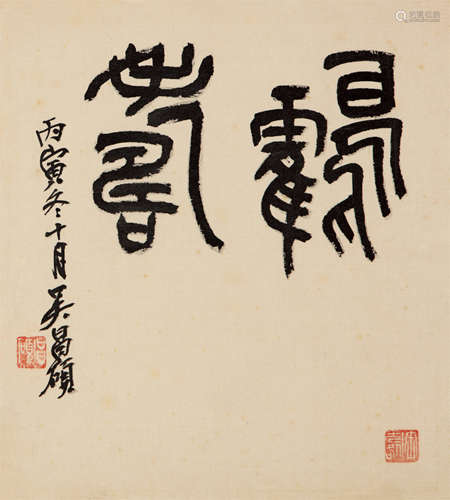 鶴壽
丙寅冬十月吳昌碩